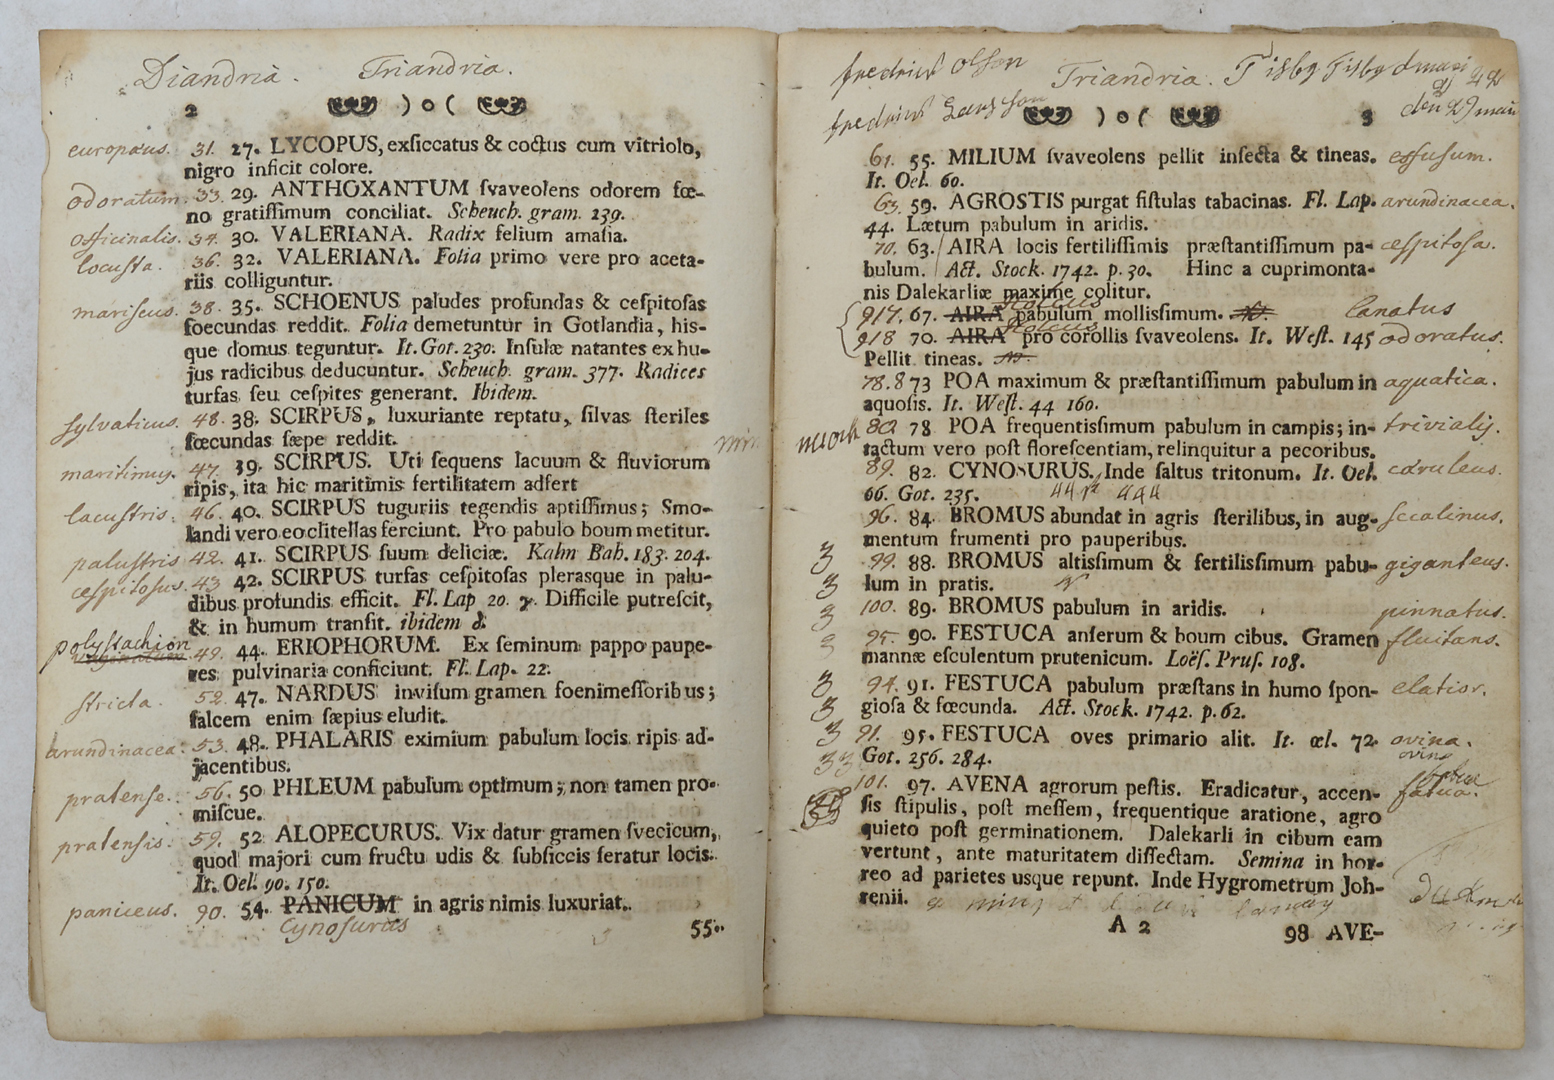 Diandria. Triandria.
2 ) o (
europæus. 31. 27. LYCOPUS, exſiccatus & coctus cum vitriolo,
nigro inficit colore.
odoratum. 33. 29. ANTHOXANTUM ſvaveolens odorem fœ-
no gratiſſimum conciliat. Scheuch. gram. 239.
officinalis. 34. 30. VALERIANA. Radix felium amaſia.
locusta. 36. 32. VALERIANA. Folia primo vere pro aceta-
riis colliguntur.
mariscus. 38. 35. SCHOENUS paludes profundas & ceſpitoſas
foecundas reddit. Folia demetuntur in Gotlandia, his-
que domus teguntur. It. Got. 230. Inſulæ natantes ex hu-
jus radicibus deducuntur. Scheuch. gram. 377. Radices
turfas ſeu ceſpites generant. Ibidem.
sylvaticus. 48. 38. SCIRPUS, luxuriante reptatu, ſilvas ſteriles
fœcundas ſæpe reddit.
maritimus. 47. 39. SCIRPUS. Uti ſequens lacuum & fluviorum
ripis, ita hic maritimis fertilitatem adfert
lacustris. 46. 40. SCIRPUS tuguriis tegendis aptiſſimus; Smo-
landi vero eo clitellas ferciunt. Pro pabulo boum metitur.
palustris 42. 41. SCIRPUS ſuum deliciæ. Kalm Bah. 183. 204.
cespitosus. 43 42. SCIRPUS turfas ceſpitoſas plerasque in palu-
dibus profundis efficit. Fl. Lap 20. γ. Difficile putreſcit,
& in humum tranſit. ibidem δ.
polystachion
vaginatum. 49. 44. ERIOPHORUM. Ex ſeminum pappo paupe-
res pulvinaria conficiunt. Fl. Lap. 22.
stricta. 52. 47. NARDUS inviſum gramen foeniſmeſſoribus;
falcem enim ſæpius eludit.
arundinacea. 53. 48. PHALARIS eximium pabulum locis ripis ad-
jacentibus.
pratense. 56. 50 PHLEUM pabulum optimum; non tamen pro-
miſcue.
pratensis. 59. 52 ALOPECURUS. Vix datur gramen ſvecicum,
quod majori cum fructu udis & ſubſiccis ſeratur locis.
It. Oel. 90. 150.
paniceus. 90. 54. PANICUM in agris nimis luxuriat.
Cynosurus
55.
fredrick olson Triandria. Tisby Tisby d
fredrick Larsson
) o ( 3
61. 55. MILIUM ſvaveolens pellit inſecta & tineas. effusum.
It. Oel. 60.
63. 59. AGROSTIS purgat fiſtulas tabacinas. Fl. Lap. arundinacea.
44. Lætum pabulum in aridis.
70. 63. AIRA locis fertiliſſimis præſtantiſſimum pa- cespitosa.
bulum. Act. Stock. 1742. p. 30. Hinc a cuprimonta-
nis Dalekarliæ maxime colitur.
Holcus
917. 67. AIRA pabulum molliſſimum. lanatus
Holcus
918 70. AIRA pro corollis ſvaveolens. It. Weſt. 145 odoratus.
Pellit tineas.
78. 73 POA maximum & præſtantiſſimum pabulum in aquatica.
aquoſis. It. Weſt. 44 160.
80. 78 POA frequentiſſimum pabulum in campis; in- trivialis.
tactum vero poſt floreſcentiam, relinquitur a pecoribus.
89. 82. CYNOSURUS. Inde ſaltus tritonum. It. Oel. cæruleus.
66. Got. 235.
96. 84. BROMUS abundat in agris ſterilibus, in aug- secalinus.
mentum frumenti pro pauperibus.
3 99. 88. BROMUS altiſſimum & fertiliſſimum pabu- giganteus.
3 lum in pratis.
3 100. 89. BROMUS pabulum in aridis. pinnatus.
3 95. 90. FESTUCA anſerum & boum cibus. Gramen fluitans.
mannæ eſculentum prutenicum. Loëſ. Pruſ. 108.
3 94. 91. FESTUCA pabulum præſtans in humo ſpon- elatior.
3 gioſa & fœcunda. Act. Stock. 1742. p. 62.
3 91. 95. FESTUCA oves primario alit. It. œl. 72 ovina.
33 Got. 256. 284. ovina
101. 97. AVENA agrorum peſtis. Eradicatur, accen- fatua.
ſis ſtipulis, poſt meſſem, frequentique aratione, agro
quieto poſt germinationem. Dalekarli in cibum eam
vertunt, ante maturitatem diſſectam. Semina in hor-
reo ad parietes usque repunt. Inde Hygrometrum Joh-
renii.
A 2 98 AVE-